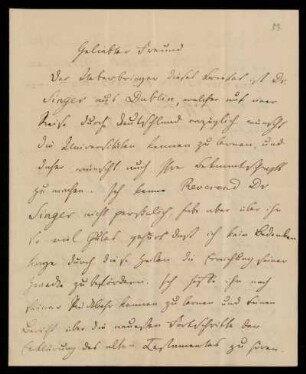 Geliebter Freund
Der Ueberbringer dieses Briefes ist Dr.
Singer aus Dublin, welcher auf einer
Reise durch Deutschland vorzüglich wünscht
die Universitäten kennen zu lernen, und
daher wünscht auch Ihre Bekanntschaft
zu machen. Ich kenne Reverend Dr
Singer nicht persönlich habe aber über ihn
so viel Gutes gehört daß ich kein Bedenken
trage durch diese Zeilen die Erreichung seiner
Zwecke zu befördern. Ich hoffe ihn nach
seiner Rückkehr kennen zu lernen und einen
Bericht über die neuesten Fortschritte der
Erklärung des alten Testamentes zu hören.